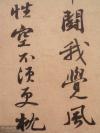 中鬪我覺風
性空不須更枕